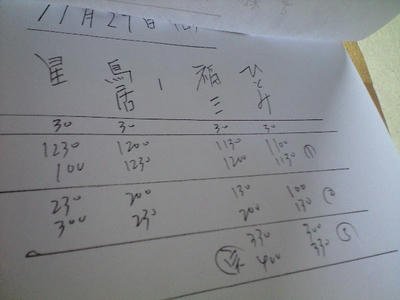 11月27日
星 鳥居 福三 ひとみ
30 30 30 30
1230 1200 1130 1100 ①
100 1230 1200 1130
230 200 130 100 ②
300 230 200 130
330 300 ③
400 330